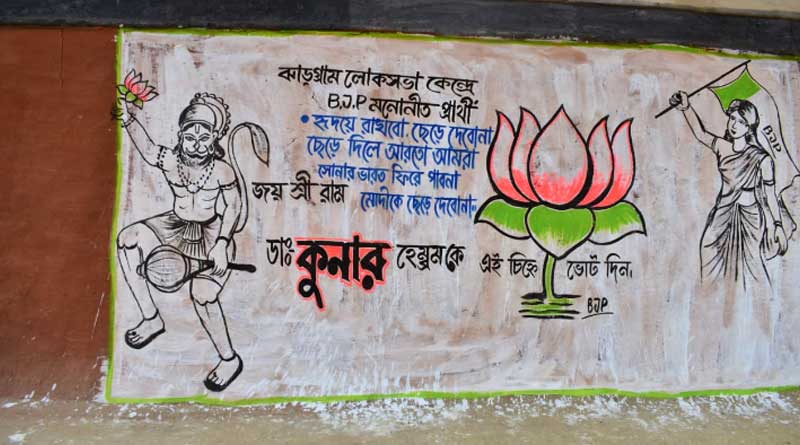 ঝাড়গ্রাম লোকসভা কেন্দ্রে
B.J.P মনোনীত প্রার্থী
• হৃদয়ে রাখবো ছেড়ে দেবোনা
ছেড়ে দিলে আরতো আমরা
সোনার ভারত ফিরে পাবনা
মোদীকে ছেড়ে দেবোনা।
জয় শ্রী রাম
ডাঃ কুনার হেমব্রমকে এই চিহ্নে ভোট দিন।
BJP
BJP